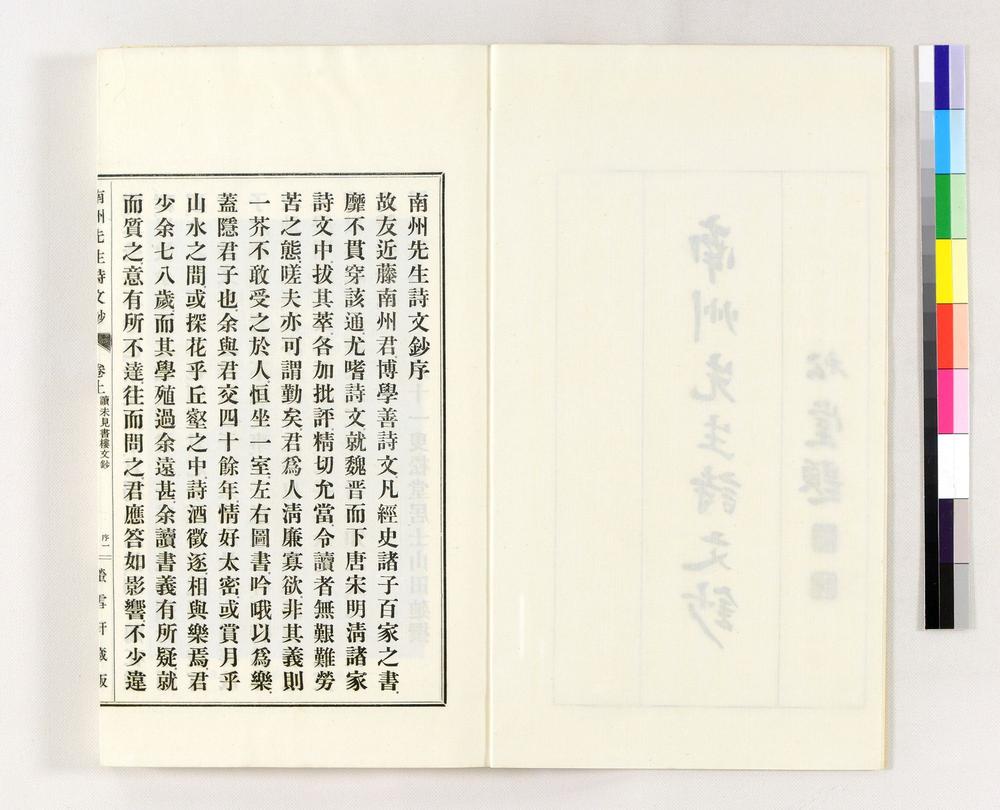 南州先生詩文鈔序
故友近藤南州君博學善詩文凡經史諸子百家之書
靡不貫穿該通尤嗜詩文就魏晋而下唐宋明淸諸家
詩文中拔其萃各加批評精切允當令讀者無艱難勞
苦之態嗟夫亦可謂勤矣君爲人淸廉寡欲非其義則
一芥不敢受之於人恒坐一室左右圖書吟哦以爲樂
蓋隱君子也余與君交四十餘年情好太密或賞月乎
山水之間或探花乎丘壑之中詩酒徵逐相與樂焉君
少余七八歲而其學殖過余遠甚余讀書義有所疑就
而質之意有所不達往而問之君應答如影響不少違
南州先生詩文鈔 卷上 讀未見書樓文鈔 序一 螢雪軒藏版
南州先生詩文鈔
松堂題